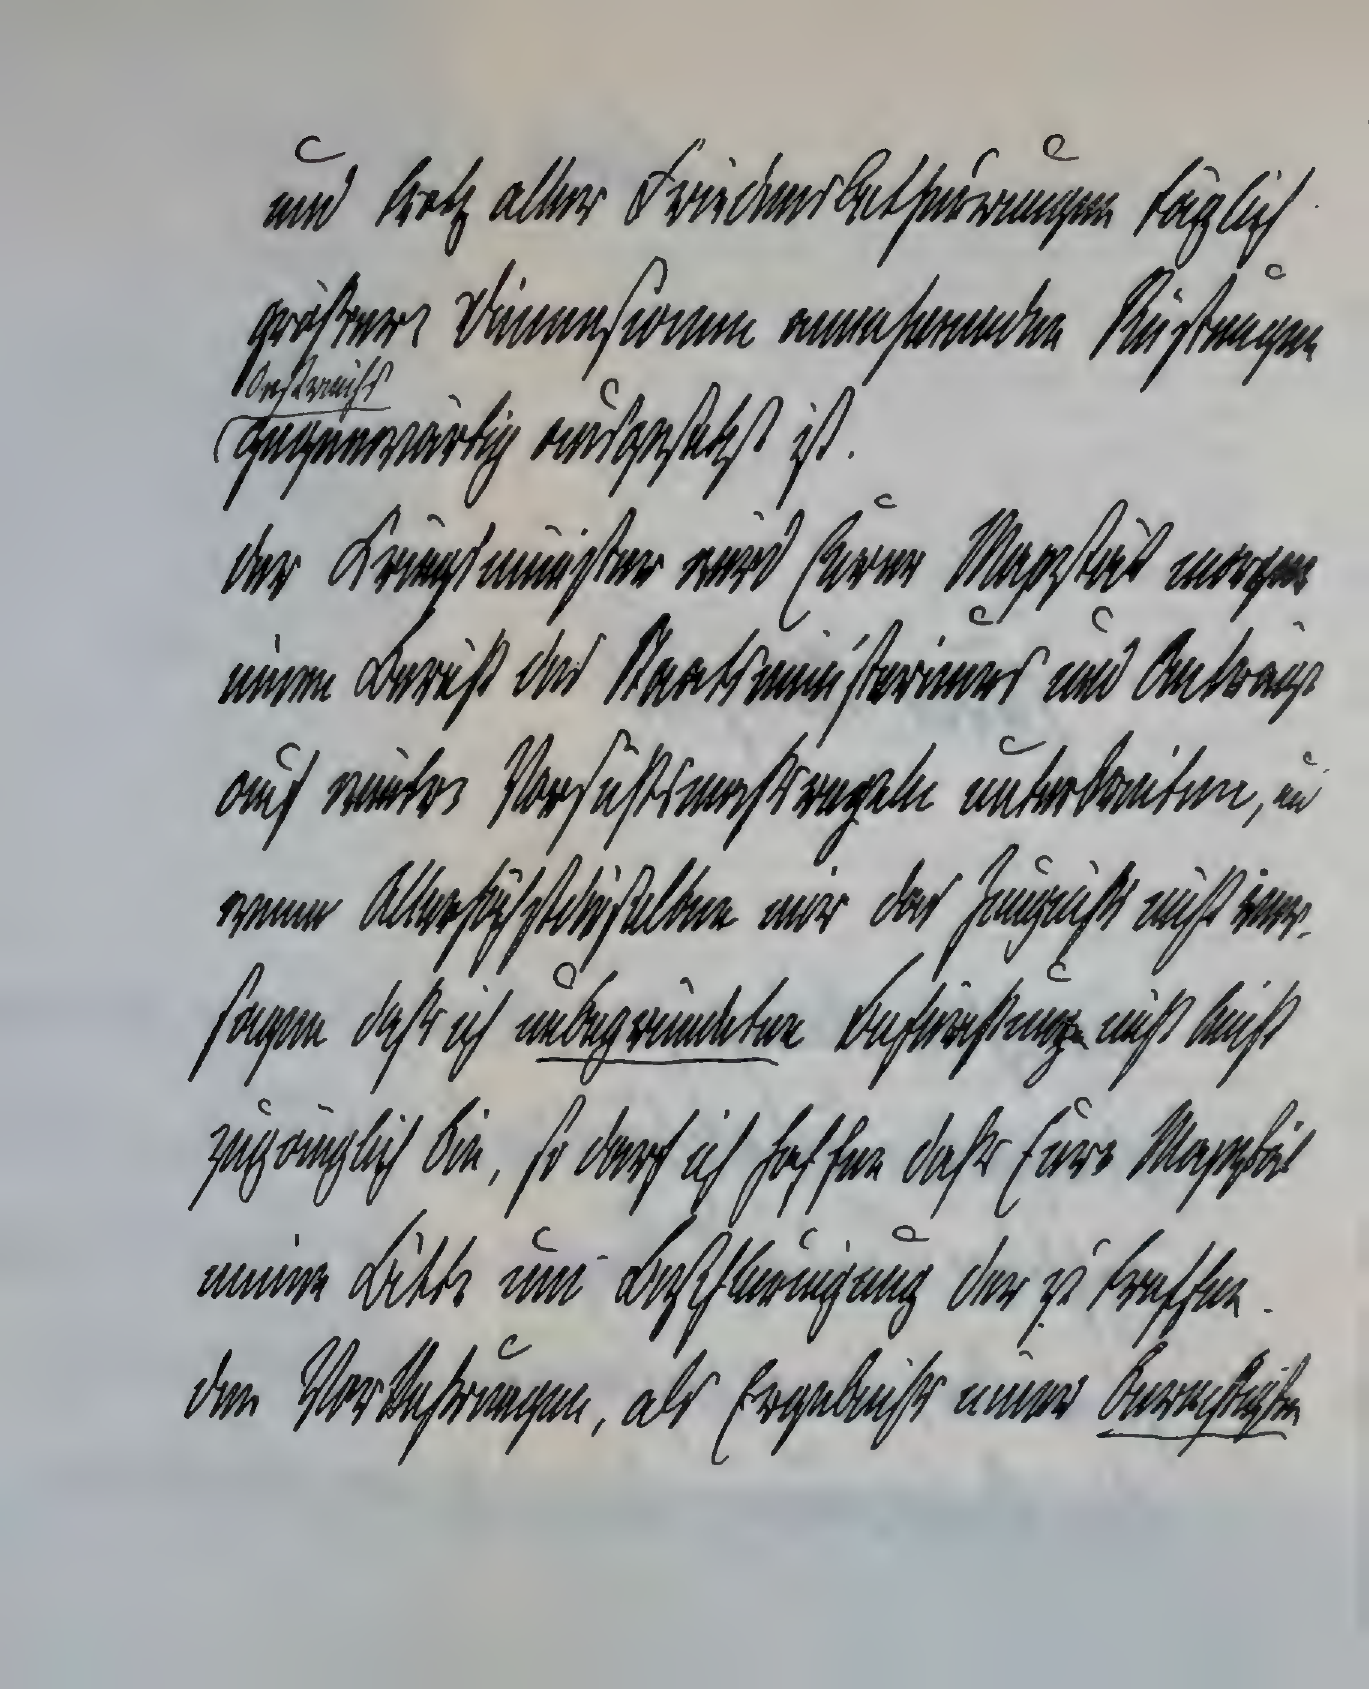 und trotz aller Friedensbetheuerungen täglich
größere Dimensionen annehmenden Rüstungen
Oestreichs
gegenwärtig ausgesetzt ist.
der Kriegsminister wird Eurer Majestät morgen
einen Bericht des Staatsministeriums und Anträge
auf weitre Vorsichtsmaßregeln unterbreiten, u
wenn Allerhöchstdieselben mir das Zeugniß nicht ver-
sagen daß ich unbegründeten Befürchtungen nicht leicht
zugänglich bin, so darf ich hoffen daß Eure Majestät
meine Bitte um Beschleunigung der zu treffen-
den Vorkehrungen, als Ergebniß einer berechtigten